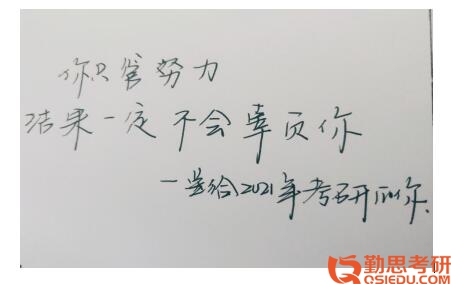 你只管努力
结果一定不会辜负你
一送给2021年考研的你.
勤思考研
QSIEDU.COM